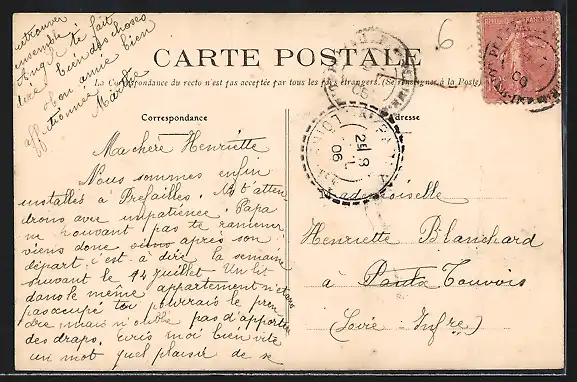 CARTE POSTALE
La Correspondance du recto n'est pas acceptée par tous les pays étrangers. (Se renseigner à la Poste)
Correspondance
Adresse
6
Ma chère Henriette
Nous sommes enfin
installés à Prefailles. Nous t'atten
drons avec impatience. Papa
ne pouvant pas te ramener
viens donc après son
départ c'est à dire la semaine
suivant le 14 juillet Un lit
dans le même appartement n'étant
pas occupé tu pourrais le pren
dre mais n'oublie pas d'apporter
des draps. Ecris moi bien vite
un mot quel plaisir de se
retrouver
ensemble
Ang te fait
dire bien des choses
ton amie bien
affectionnée
Marthe
Mademoiselle
Henriette Blanchard
à Touvois
(Loire Infre)